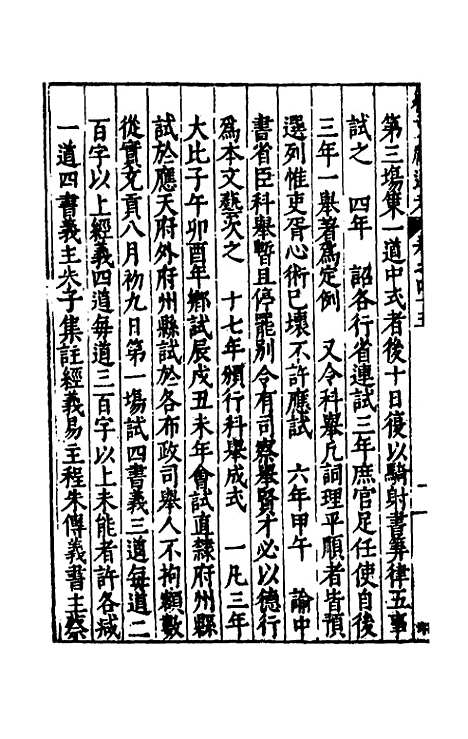 第三塲䇿一道中式者後十日復以騎射書筭律五事
試之　四年　詔各行省連試三年庶官足任使自後
三年一舉著爲定例　又令科舉凡詞理平順者皆預
選列惟吏胥心術已壞不許應試　六年甲午　諭中
書省臣科舉暫且停罷别令有司察舉賢才必以德行
爲本文藝次之　十七年頒行科舉成式　一凡三年
大比子午卯酉年鄉試辰戌丑未年會試直隷府州縣
試於應天府外府州縣試於各布政司舉人不拘額數
從實充貢八月初九日第一塲試四書義三道毎道二
百字以上經義四道毎道三百字以上未能者許各减
一道四書義主朱子集註經義易主程朱傳義書主蔡